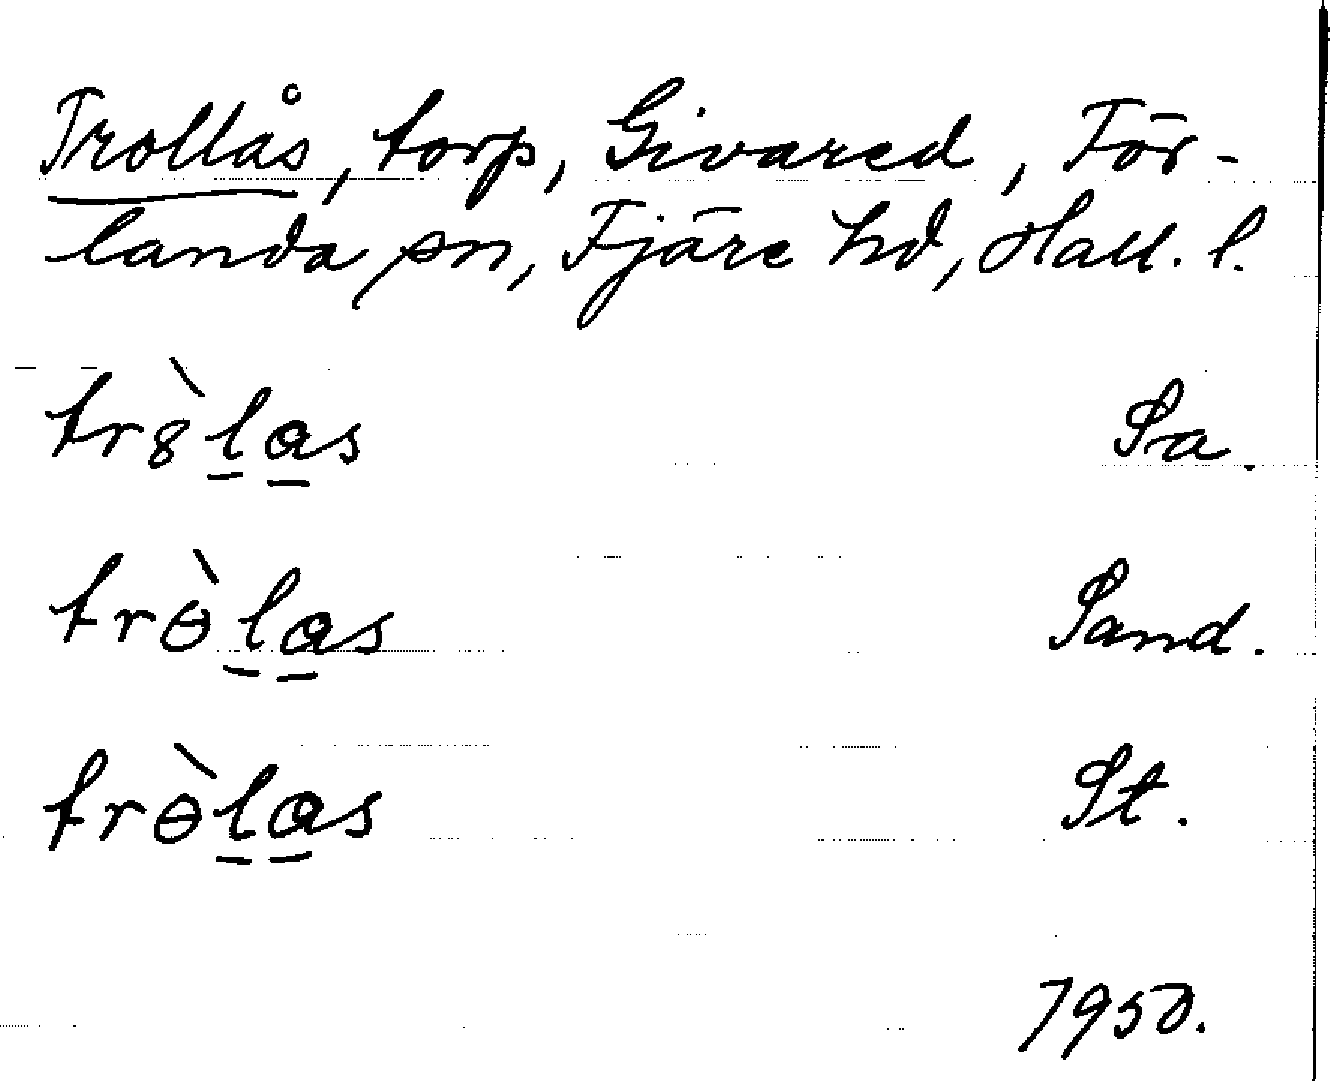 Trollås, torp, Givared, För-
landa sn, Fjäre hd, Hall. l.
tr8̀las Sa.
trɵ̀las Sand.
trɵ̀las St.
1950.